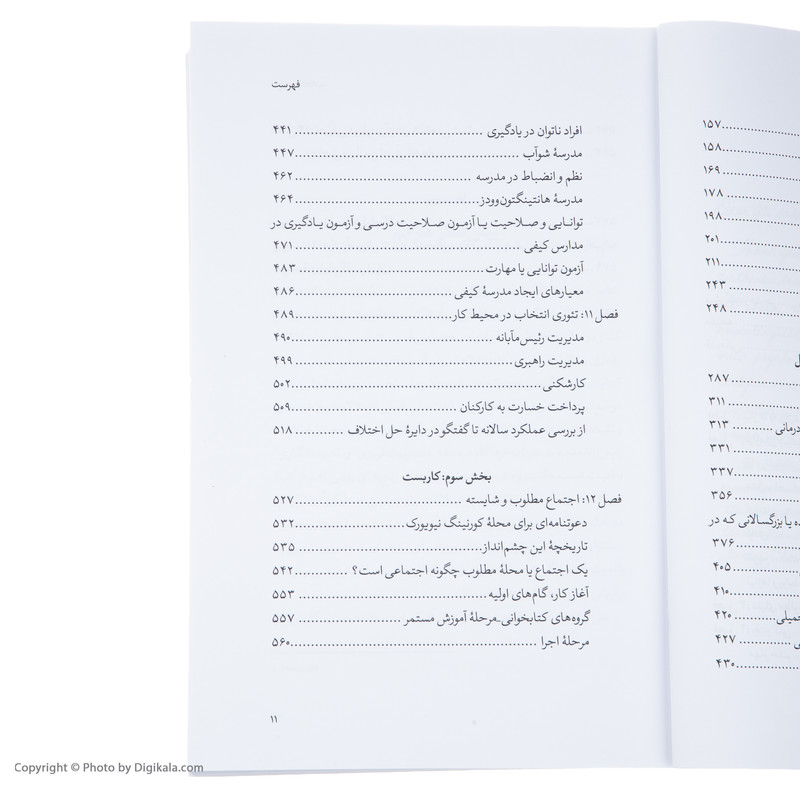 ۱۵۷
۱۵۸
۱۶۹
۱۷۸
۱۹۸
۲۰۱
۲۱۱
۲۴۳
۲۴۸
۲۸۷
۳۱۱
درمانی ........... ۳۱۳
۳۳۱
۳۳۷
۳۵۶
ده یا بزرگسالانی که در
۳۷۶
۴۰۵
۴۱۰
۴۲۰
۴۲۷
۴۳۰
فهرست
افراد ناتوان در یادگیری ........ ۴۴۱
مدرسهٔ شوآب ........ ۴۴۷
نظم و انضباط در مدرسه ........ ۴۶۲
مدرسهٔ هانتینگتون‌وودز ........ ۴۶۴
توانایی و صلاحیت یا آزمون صلاحیت درسی و آزمون یادگیری در
مدارس کیفی ........ ۴۷۱
آزمون توانایی یا مهارت ........ ۴۸۳
معیارهای ایجاد مدرسهٔ کیفی ........ ۴۸۶
فصل ۱۱: تئوری انتخاب در محیط کار ........ ۴۸۹
مدیریت رئیس‌مآبانه ........ ۴۹۰
مدیریت راهبری ........ ۴۹۹
کارشکنی ........ ۵۰۲
پرداخت خسارت به کارکنان ........ ۵۰۹
از بررسی عملکرد سالانه تا گفتگو در دایرهٔ حل اختلاف ........ ۵۱۸
بخش سوم: کاربست
فصل ۱۲: اجتماع مطلوب و شایسته ........ ۵۲۷
دعوتنامه‌ای برای محلهٔ کورنینگ نیویورک ........ ۵۳۲
تاریخچهٔ این چشم‌انداز ........ ۵۳۵
یک اجتماع یا محلهٔ مطلوب چگونه اجتماعی است؟ ........ ۵۴۲
آغاز کار، گام‌های اولیه ........ ۵۵۳
گروه‌های کتابخوانی-مرحلهٔ آموزش مستمر ........ ۵۵۷
مرحلهٔ اجرا ........ ۵۶۰
۱۱
Copyright © Photo by Digikala.com